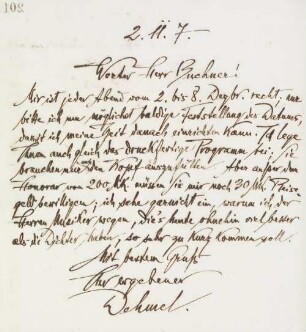 102
2. 11. 7.
Werter Herr Buchner!
Mir ist jeder Abend vom 2. bis 8. Dezbr. recht, nur
bitte ich um möglichst baldige Feststellung des Datums,
damit ich meine Zeit danach einrichten kann. Ich lege
Ihnen auch gleich das druckfertige Programm bei. Sie
brauchen nur noch den Kopf auszufüllen. Aber außer dem
Honorar von 200 Mk. müssen Sie mir noch 30 Mk. Reise-
geld bewilligen; ich sehe garnicht ein, warum ich, der
Herren Musiker wegen, die's heute ohnehin viel besser
als die Dichter haben, so sehr zu kurz kommen soll.
Mit bestem Gruß
Ihr ergebener
Dehmel.